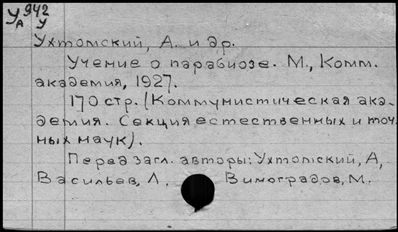 У 942
А У
Ухтомский, А. и др.
Учение о парабиозе. М., Комм.
академия, 1927.
170 стр. (Коммунистическая ака-
демия. Секция естественных и точ-
ных наук).
Перед загл. авторы: Ухтомский, А,
Васильев, Л. Виноградов, М.